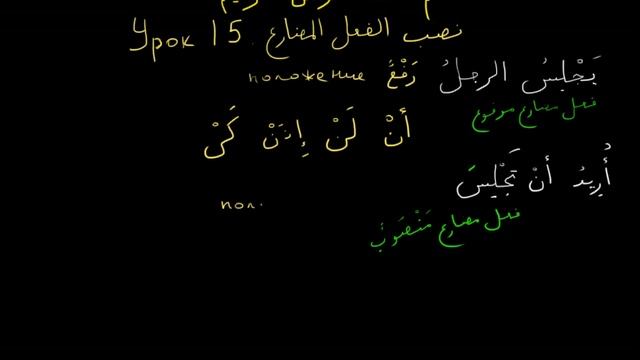 Урок 15. نصب الفعل المضارع
يَجْلِسُ الرجلُ رَفْعٌ положение
فعل مضارع مرفوع
أَنْ لَنْ إِذَنْ كَىْ
أُرِيدُ أَنْ تَجْلِسَ
пол.
فعل مضارع مَنْصُوبٌ